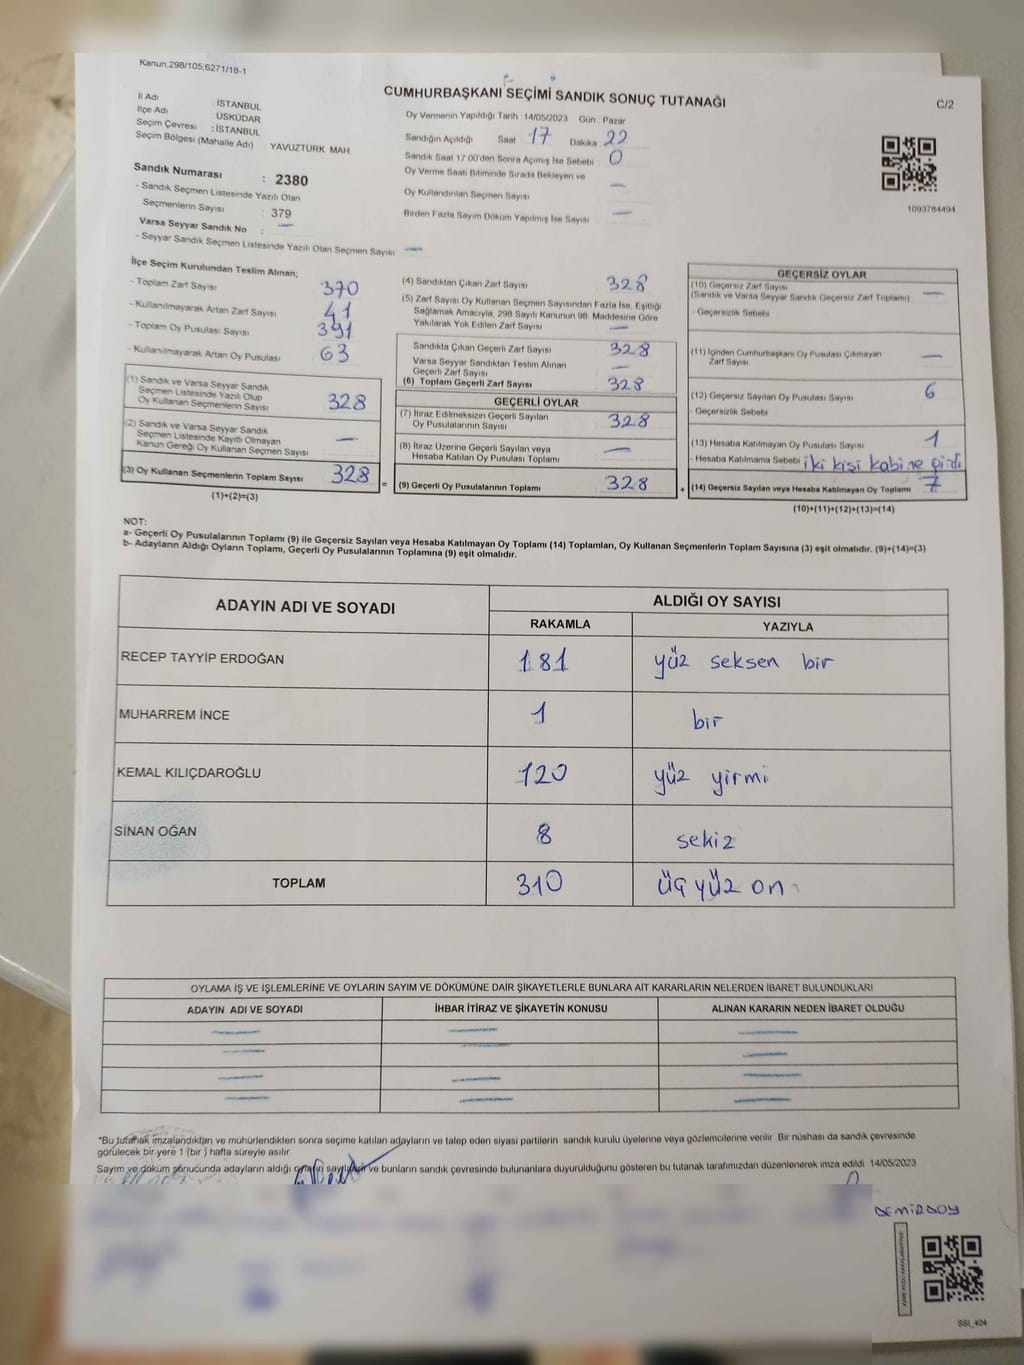 Kanun,298/105,6271/18-1
CUMHURBAŞKANI SEÇİMİ SANDIK SONUÇ TUTANAĞI
C/2
İl Adı : İSTANBUL
İlçe Adı : ÜSKÜDAR
Seçim Çevresi : İSTANBUL
Seçim Bölgesi (Mahalle Adı) : YAVUZTÜRK MAH
Sandık Numarası : 2380
- Sandık Seçmen Listesinde Yazılı Olan
Seçmenlerin Sayısı : 379
Varsa Seyyar Sandık No : —
- Seyyar Sandık Seçmen Listesinde Yazılı Olan Seçmen Sayısı —
Oy Vermenin Yapıldığı Tarih :14/05/2023 Gün : Pazar
Sandığın Açıldığı Saat 17 Dakika 22
Sandık Saat 17:00'den Sonra Açılmış İse Sebebi : 0
Oy Verme Saati Bitiminde Sırada Bekleyen ve
Oy Kullandırılan Seçmen Sayısı —
Birden Fazla Sayım Döküm Yapılmış İse Sayısı —
1093784494
İlçe Seçim Kurulundan Teslim Alınan;
- Toplam Zarf Sayısı 370
- Kullanılmayarak Artan Zarf Sayısı 41
- Toplam Oy Pusulası Sayısı 391
- Kullanılmayarak Artan Oy Pusulası 63
(1) Sandık ve Varsa Seyyar Sandık
Seçmen Listesinde Yazılı Olup
Oy Kullanan Seçmenlerin Sayısı 328
(2) Sandık ve Varsa Seyyar Sandık
Seçmen Listesinde Kayıtlı Olmayan
Kanun Gereği Oy Kullanan Seçmen Sayısı —
(3) Oy Kullanan Seçmenlerin Toplam Sayısı 328
(1)+(2)=(3)
(4) Sandıktan Çıkan Zarf Sayısı 328
(5) Zarf Sayısı Oy Kullanan Seçmen Sayısından Fazla İse, Eşitliği
Sağlamak Amacıyla, 298 Sayılı Kanunun 98. Maddesine Göre
Yakılarak Yok Edilen Zarf Sayısı —
Sandıkta Çıkan Geçerli Zarf Sayısı 328
Varsa Seyyar Sandıktan Teslim Alınan
Geçerli Zarf Sayısı —
(6) Toplam Geçerli Zarf Sayısı 328
GEÇERLİ OYLAR
(7) İtiraz Edilmeksizin Geçerli Sayılan
Oy Pusulalarının Sayısı 328
(8) İtiraz Üzerine Geçerli Sayılan veya
Hesaba Katılan Oy Pusulası Toplamı —
= (9) Geçerli Oy Pusulalarının Toplamı 328 +
GEÇERSİZ OYLAR
(10) Geçersiz Zarf Sayısı
(Sandık ve Varsa Seyyar Sandık Geçersiz Zarf Toplamı) —
- Geçersizlik Sebebi
(11) İçinden Cumhurbaşkanı Oy Pusulası Çıkmayan
Zarf Sayısı —
(12) Geçersiz Sayılan Oy Pusulası Sayısı 6
- Geçersizlik Sebebi
(13) Hesaba Katılmayan Oy Pusulası Sayısı 1
- Hesaba Katılmama Sebebi iki kişi kabine girdi
(14) Geçersiz Sayılan veya Hesaba Katılmayan Oy Toplamı 7
(10)+(11)+(12)+(13)=(14)
NOT:
a- Geçerli Oy Pusulalarının Toplamı (9) ile Geçersiz Sayılan veya Hesaba Katılmayan Oy Toplamı (14) Toplamları, Oy Kullanan Seçmenlerin Toplam Sayısına (3) eşit olmalıdır. (9)+(14)=(3)
b- Adayların Aldığı Oyların Toplamı, Geçerli Oy Pusulalarının Toplamına (9) eşit olmalıdır.
ADAYIN ADI VE SOYADI ALDIĞI OY SAYISI
RAKAMLA YAZIYLA
RECEP TAYYİP ERDOĞAN 181 yüz seksen bir
MUHARREM İNCE 1 bir
KEMAL KILIÇDAROĞLU 120 yüz yirmi
SİNAN OĞAN 8 sekiz
TOPLAM 310 üç yüz on
OYLAMA İŞ VE İŞLEMLERİNE VE OYLARIN SAYIM VE DÖKÜMÜNE DAİR ŞİKAYETLERLE BUNLARA AİT KARARLARIN NELERDEN İBARET BULUNDUKLARI
ADAYIN ADI VE SOYADI İHBAR İTİRAZ VE ŞİKAYETİN KONUSU ALINAN KARARIN NEDEN İBARET OLDUĞU
— — —
— — —
— — —
— — —
*Bu tutanak imzalandıktan ve mühürlendikten sonra seçime katılan adayların ve talep eden siyasi partilerin sandık kurulu üyelerine veya gözlemcilerine verilir. Bir nüshası da sandık çevresinde
görülecek bir yere 1 (bir ) hafta süreyle asılır.
Sayım ve döküm sonucunda adayların aldığı oyların sayıları ve bunların sandık çevresinde bulunanlara duyurulduğunu gösteren bu tutanak tarafımızdan düzenlenerek imza edildi. 14/05/2023
DEMİRSOY
SSI_404